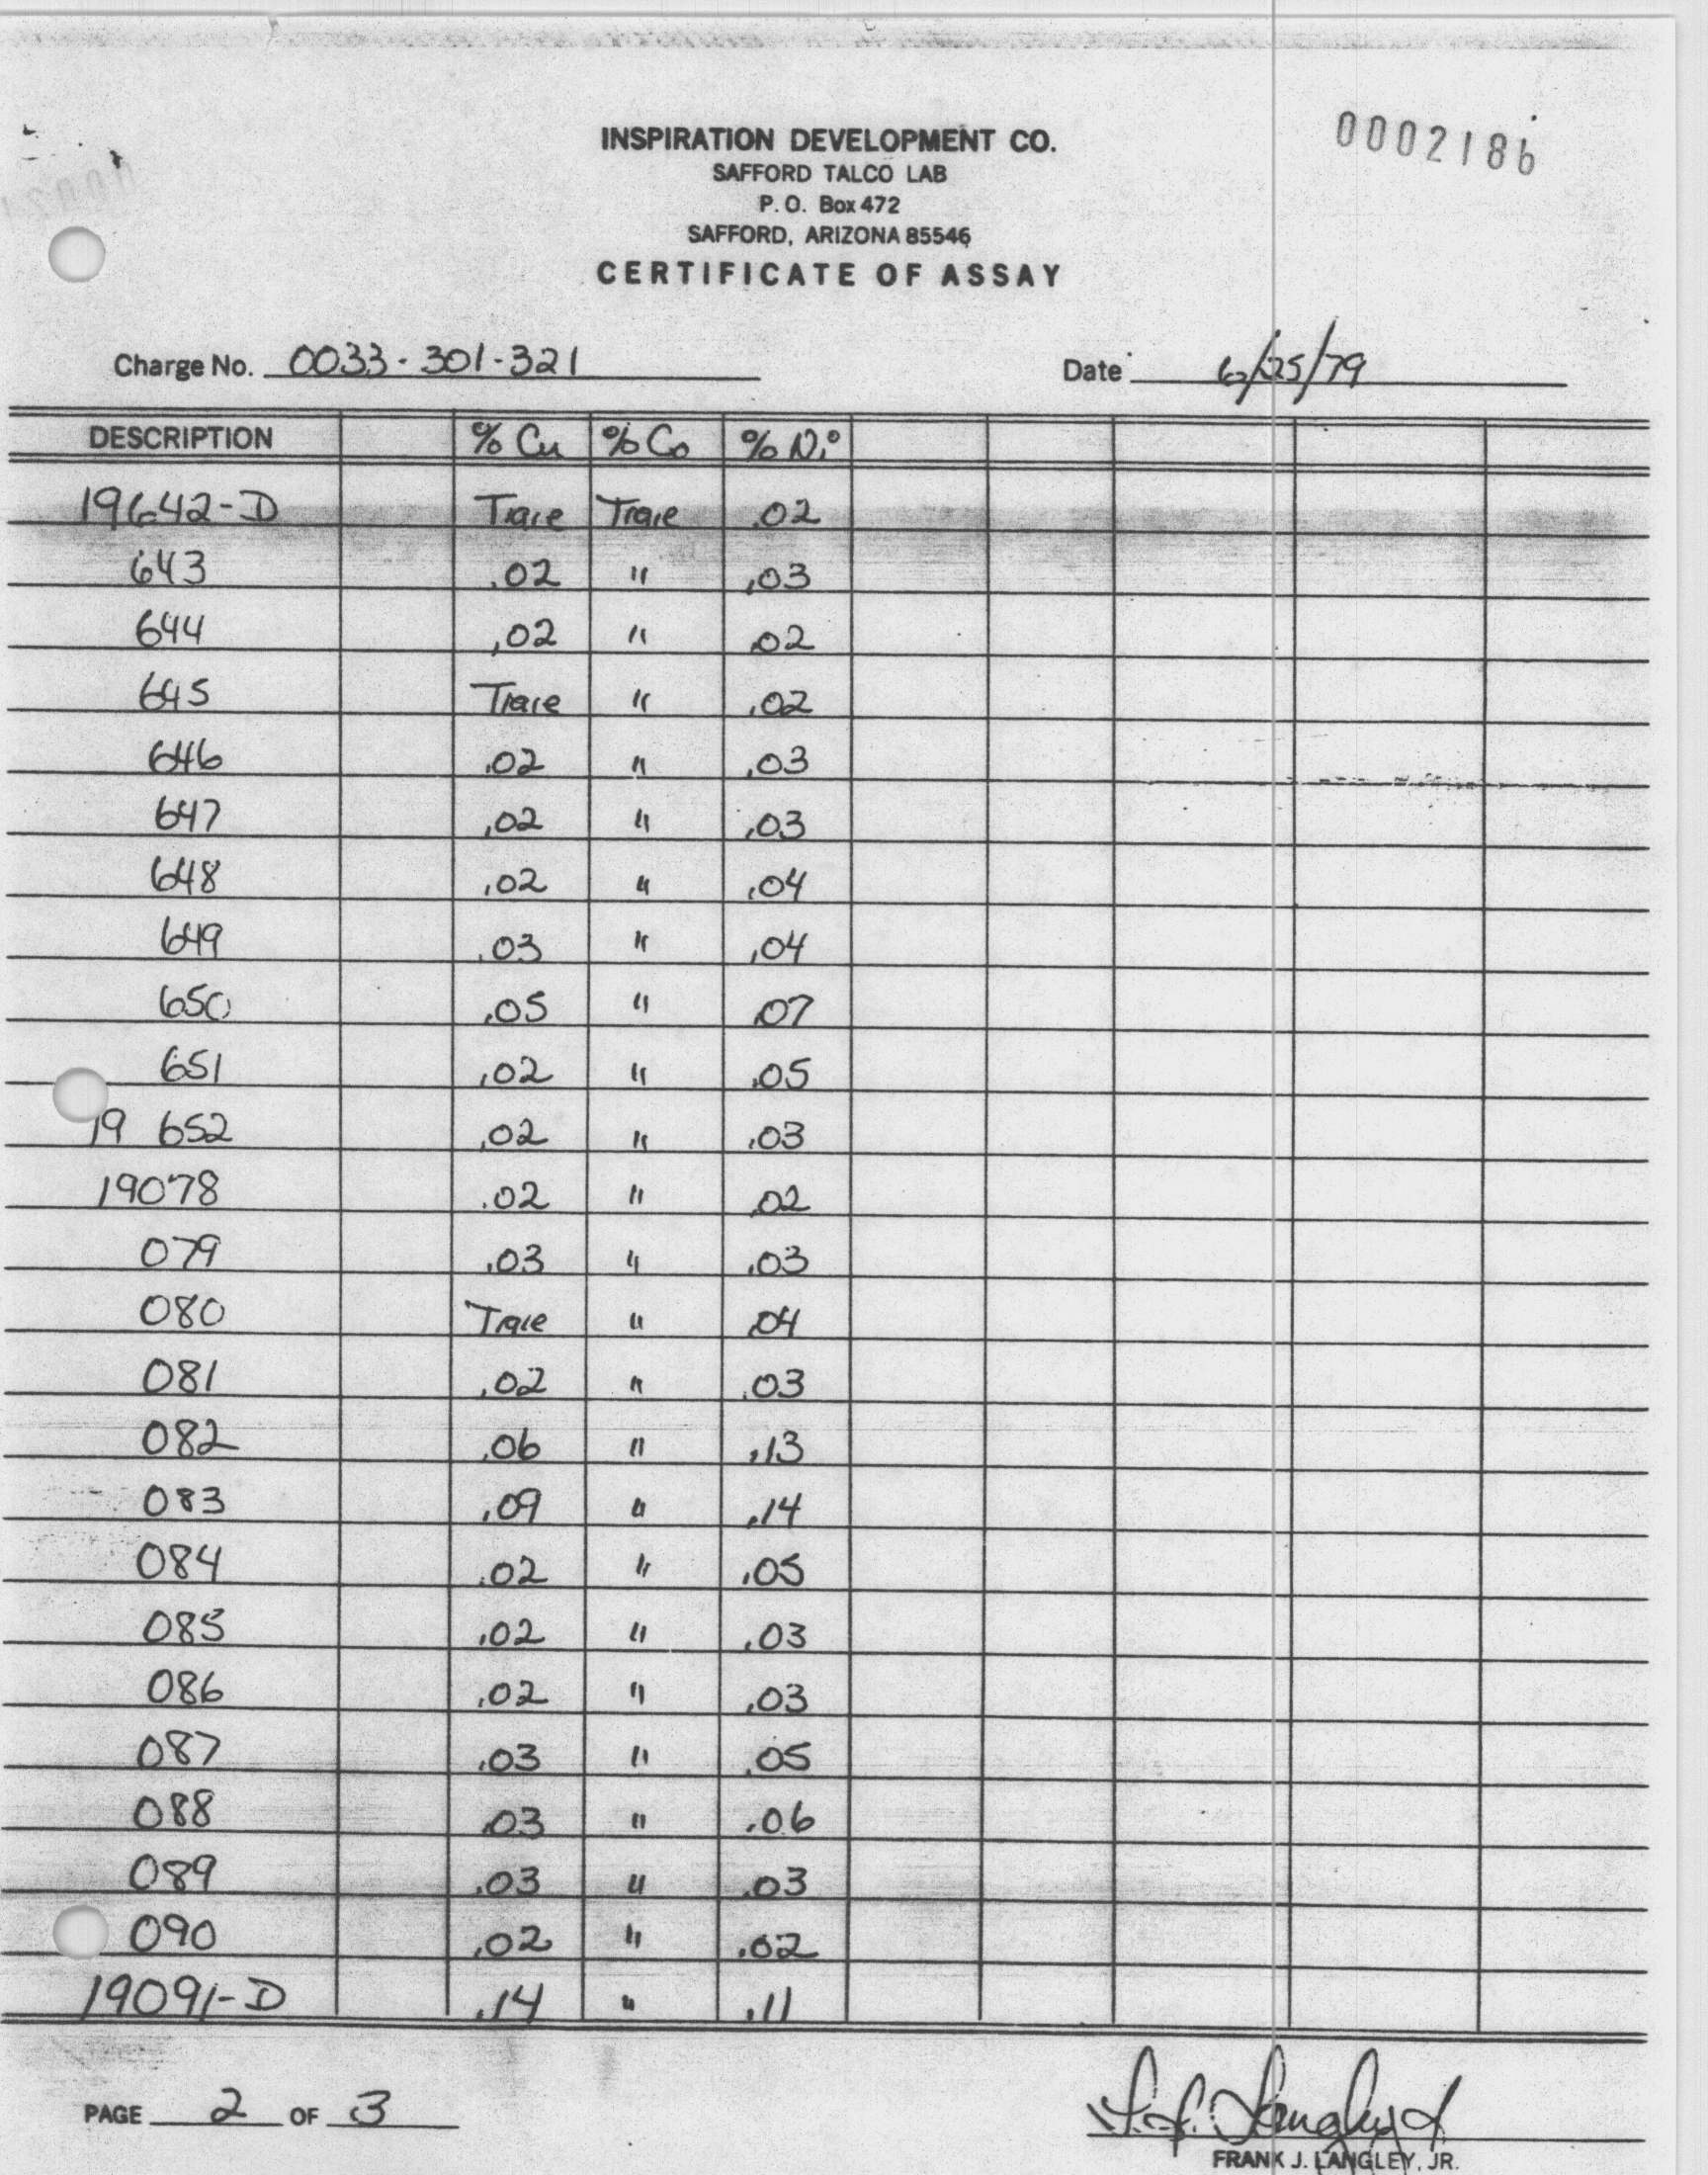 0002186
INSPIRATION DEVELOPMENT CO.
SAFFORD TALCO LAB
P. O. Box 472
SAFFORD, ARIZONA 85546
CERTIFICATE OF ASSAY
Charge No. 0033-301-321 Date 6/25/79
DESCRIPTION % Cu % Co % Ni
19642-D Trace Trace .02
643 .02 " .03
644 .02 " .02
645 Trace " .02
646 .02 " .03
647 .02 " .03
648 .02 " .04
649 .03 " .04
650 .05 " .07
651 .02 " .05
19 652 .02 " .03
19078 .02 " .02
079 .03 " .03
080 Trace " .04
081 .02 " .03
082 .06 " .13
083 .09 " .14
084 .02 " .05
085 .02 " .03
086 .02 " .03
087 .03 " .05
088 .03 " .06
089 .03 " .03
090 .02 " .02
19091-D .14 " .11
PAGE 2 OF 3
FRANK J. LANGLEY, JR.